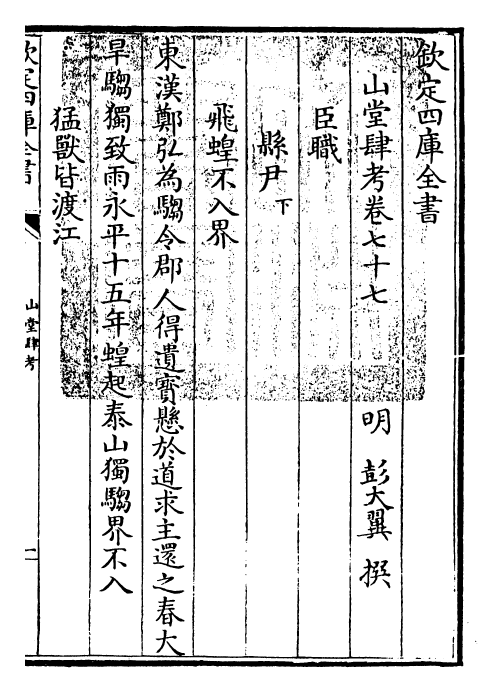 欽定四庫全書
山堂肆考卷七十七　明　彭大翼　撰
臣職
縣尹下
飛蝗不入界
東漢鄭弘為騶令郡人得遺寳懸於道求主還之春大
旱騶獨致雨永平十五年蝗起泰山獨騶界不入
猛獸皆渡江
欽定四庫全書
山堂肆考